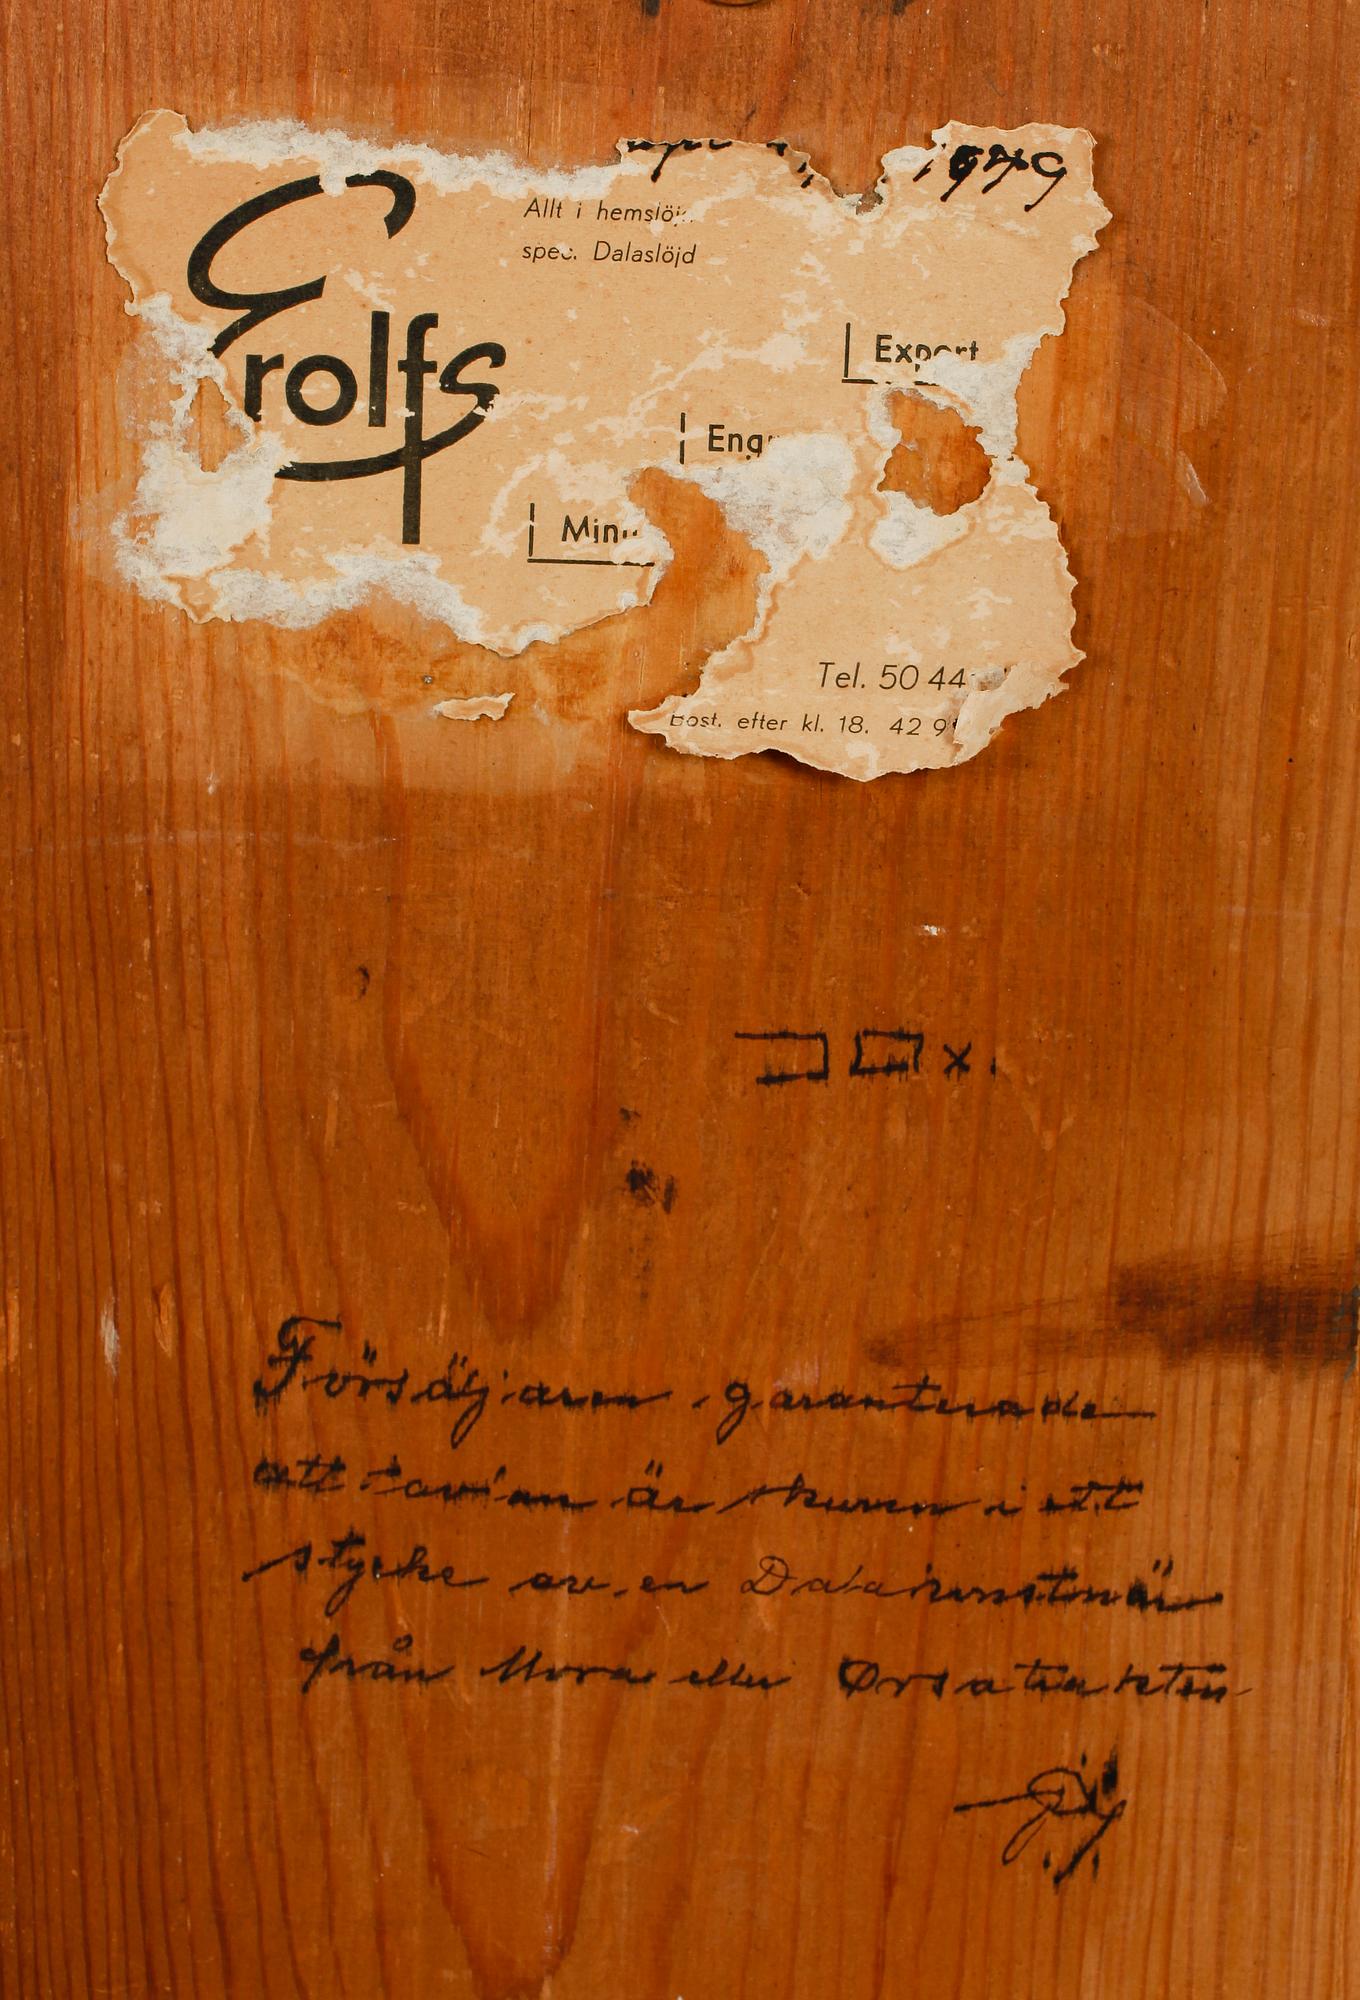 1949
Allt i hemslöj
spec. Dalaslöjd
Erolfs
Export
Eng
Min
Tel. 50 44
Bost. efter kl. 18. 42 9
Försäljaren garanterade
att tavlan är skuren i ett
stycke av en Dalakonstnär
från Mora eller Orsatrakten